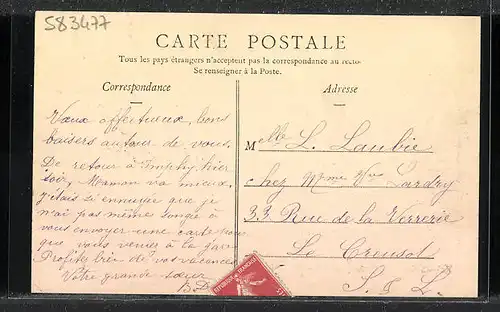 583477
CARTE POSTALE
Tous les pays étrangers n'acceptent pas la correspondance au recto
Se renseigner à la Poste.
Correspondance
Vœux affectueux, bons
baisers autour de vous.
De retour à Imphy hier
soir, Maman va mieux,
j'étais si ennuyée que je
n'ai pas même songé à
vous envoyer une carte
que vous veniez à la gare
Profitez bien de vos vacances
Votre grande sœur
B.D
Adresse
Melle L. Laubie
chez Mme Vve Lardry
33 Rue de la Verrerie
Le Creusot
S. & L.
REPUBLIQUE FRANCAISE